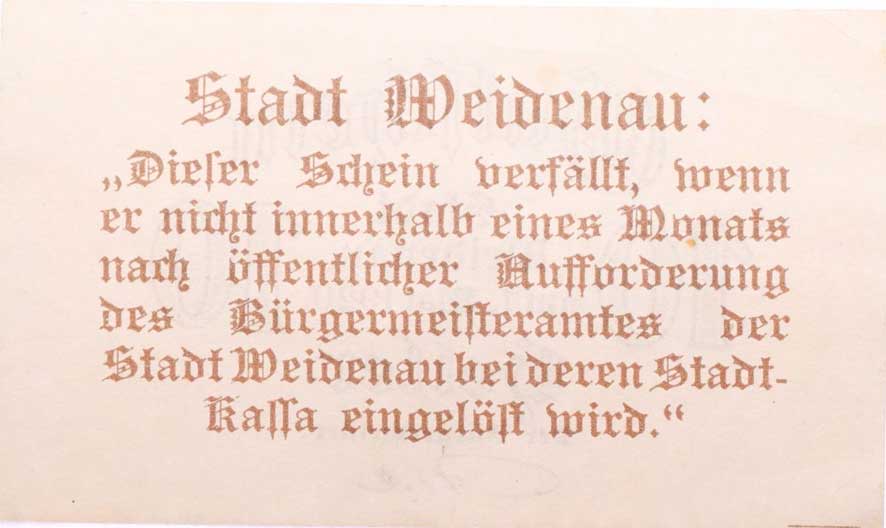 Stadt Weidenau:
„Dieſer Schein verfällt, wenn
er nicht innerhalb eines Monats
nach öffentlicher Aufforderung
des Bürgermeiſteramtes der
Stadt Weidenau bei deren Stadt-
Kaſſa eingelöſt wird.“